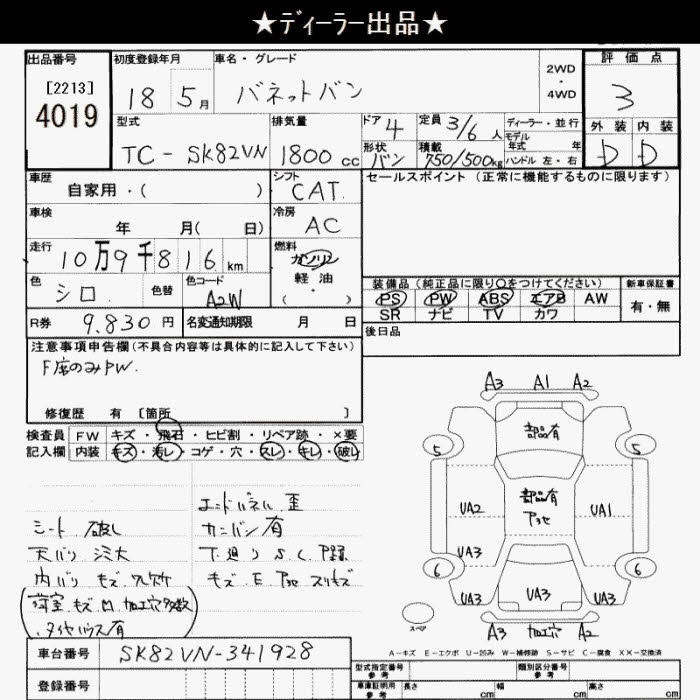 ★ディーラー出品★
出品番号
[2213]
4019
初度登録年月
18 5月
車名・グレード
バネットバン
2WD
・
4WD
評価点
3
外装 内装
D D
型式
TC- SK82VN
排気量
1800 cc
ドア
4
定員
3/6人
ディーラー・並行
モデル
年式 年
ハンドル 左・右
形状
バン
積載
750/500kg
車歴
自家用・( )
シフト
CAT.
セールスポイント (正常に機能するものに限ります)
車検
年 月( 日)
冷房
AC
走行
10万9千816km
燃料
ガソリン
軽油
( ・ )
色
シロ
色替
色コード
A2W
装備品(純正品に限り〇をつけてください)
新車保証書
PS PW ABS エアB AW
SR ナビ TV カワ
有・無
R券
9.830円
名変通知期限 月 日
後日品
注意事項申告欄(不具合内容等は具体的に記入して下さい)
F席のみPW.
修復歴 有 [箇所 ]
検査員
記入欄
FW キズ・飛石・ヒビ割・リペア跡・×要
内装 キズ・汚レ・コゲ・穴・スレ・キレ・破レ
エンドパネル 歪
シート 破レ
カンバン有
天バリ シミ大
下廻り S.C.
内バリ キズ
キズ E
荷室 キズ 凹 加工穴多数
タイヤハウス有
A3 A1 A2
部品有
5 5
部品有
UA2
UA1
UA3
6 6
UA3 UA3 UA3
スペア
A3 加工穴 A2
A-キズ E-エクボ U-凹み W-補修跡 S-サビ C-腐食 XX-交換済
車台番号
SK82VN-341928
登録番号
型式指定番号
参考
類別区分番号
参考
車庫証明用
参考
長さ cm
幅 cm
高さ cm